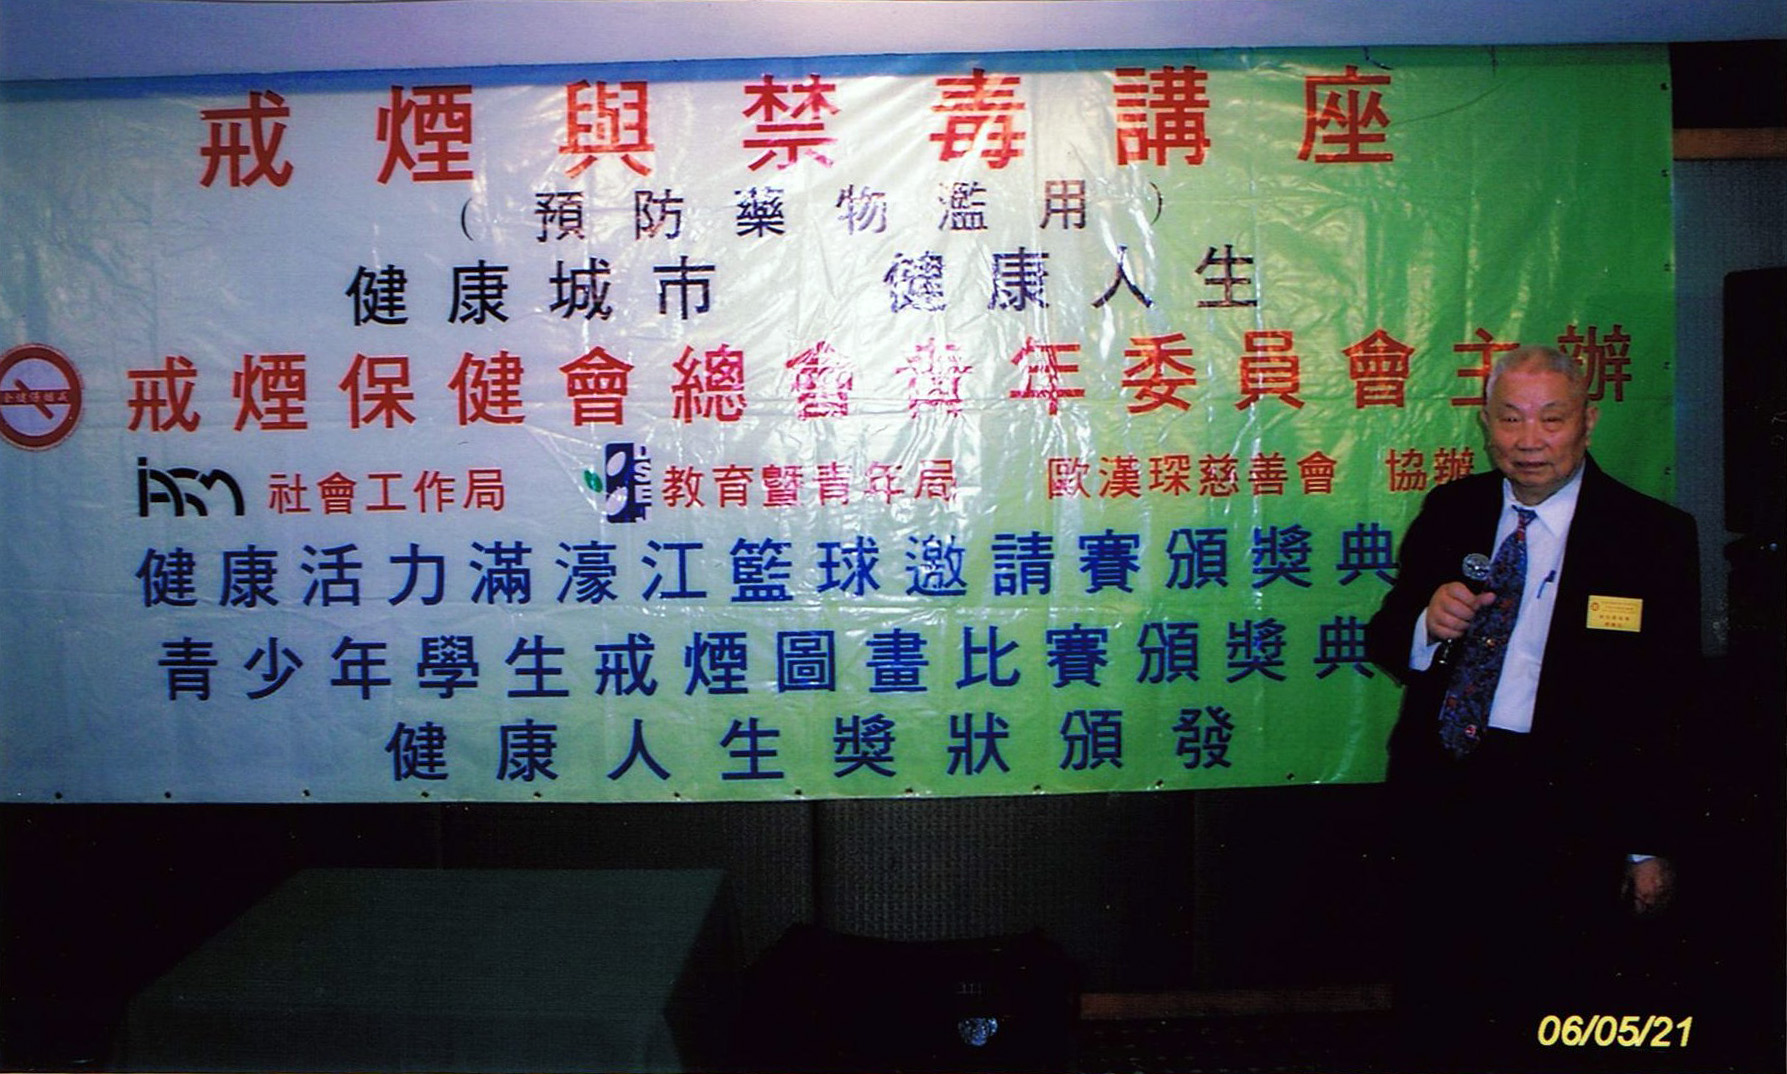 戒煙與禁毒講座
（預防藥物濫用）
健康城市 健康人生
戒煙保健會總會青年委員會主辦
社會工作局 教育暨青年局 歐漢琛慈善會 協辦
健康活力滿濠江籃球邀請賽頒獎典
青少年學生戒煙圖畫比賽頒獎典
健康人生獎狀頒發
06/05/21